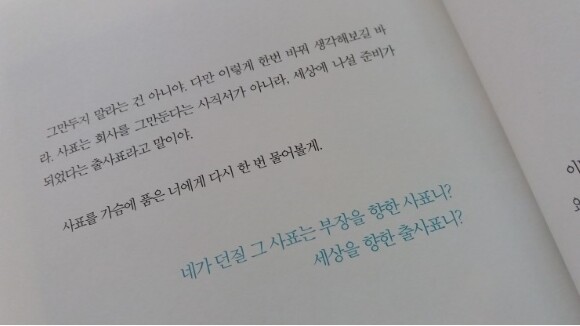 그만두지 말라는 건 아니야. 다만 이렇게 한번 바꿔 생각해보길 바
라. 사표는 회사를 그만둔다는 사직서가 아니라, 세상에 나설 준비가
되었다는 출사표라고 말이야.
사표를 가슴에 품은 너에게 다시 한 번 물어볼게.
네가 던질 그 사표는 부장을 향한 사표니?
세상을 향한 출사표니?